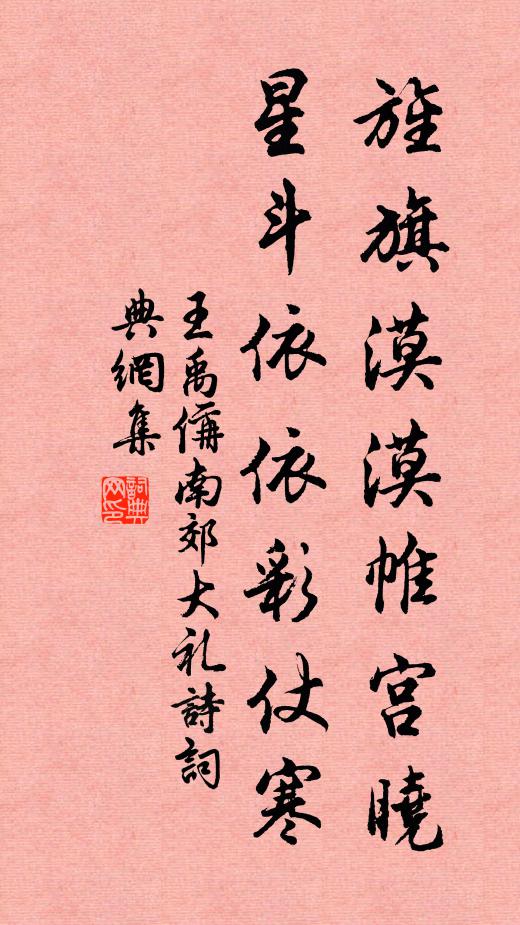 旌旗漠漠帷宫曉
星斗依依彩仗寒
王禹偁南郊大礼詩詞
典網集
詞典网印